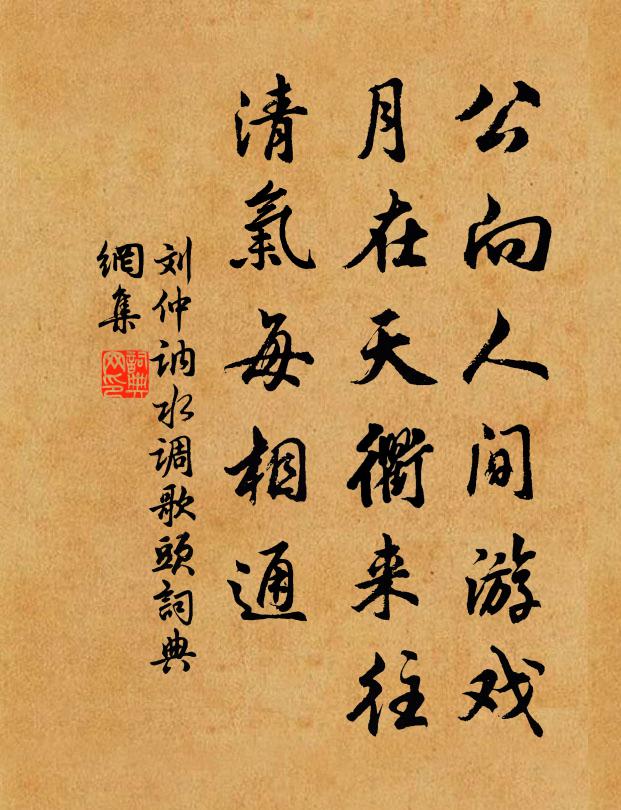 公向人间游戏
月在天衢来往
清氣每相通
刘仲讷水调歌头詞典
網集
詞典網印